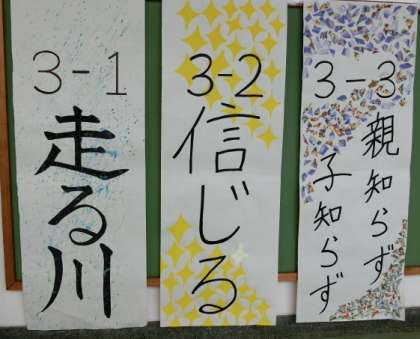 3-1
走る川
3-2
信じる
3-3
親知らず
子知らず